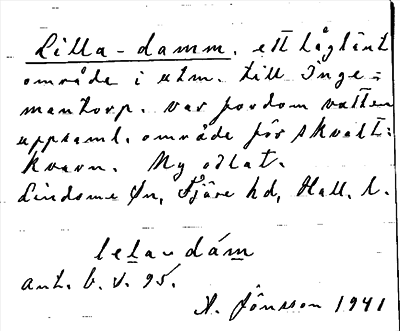 Lilla-damm. ett låglänt
område i utm. till Inge-
mantorp. var fordom vatten
uppsaml. område för skvalt-
kvarn. Ny odlat.
Lindome sn, Fjäre hd, Hall. l.
lela-dám
ant. b. v. 95.
A. Jönsson 1941